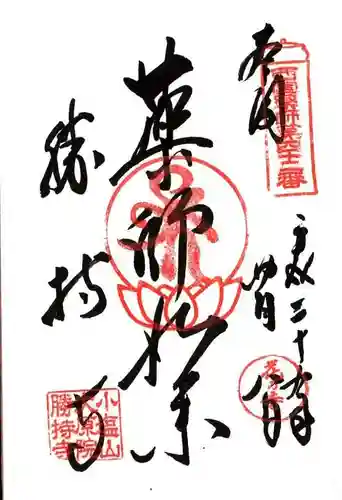 奉拝
西國薬師第四十二番
平成二十年
四月八日
薬師如来
勝持寺
小塩山
大原院
勝持寺